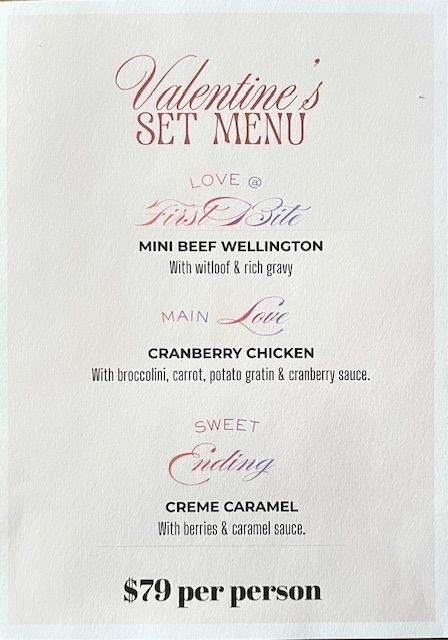 Valentine's
SET MENU
LOVE @
First Bite
MINI BEEF WELLINGTON
With witloof & rich gravy
MAIN Love
CRANBERRY CHICKEN
With broccolini, carrot, potato gratin & cranberry sauce.
SWEET
Ending
CREME CARAMEL
With berries & caramel sauce.
$79 per person